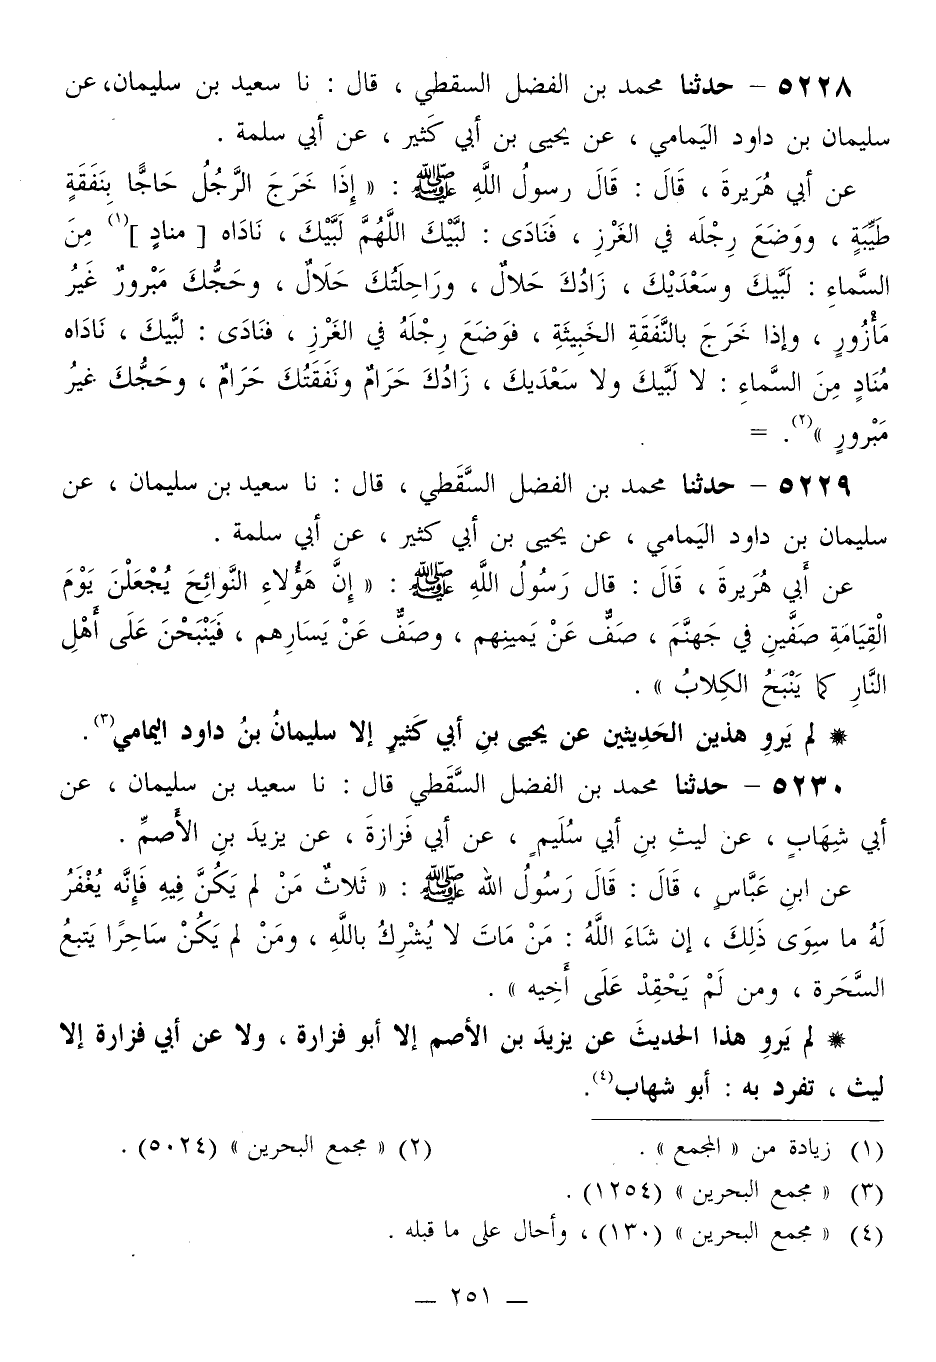 ٥٢٢٨ – حدثنا محمد بن الفضل السقطي ، قال : نا سعيد بن سليمان، عن
سليمان بن داود اليَمامي ، عن يحيى بن أبي كَثير ، عن أبي سلمة .
عن أبي هُرَيرةَ ، قَالَ : قَالَ رسولُ اللَّهِ ﷺ : « إِذَا خَرَجَ الرَّجُلُ حَاجًّا بِنَفَقَةٍ
طَيِّبَةٍ ، ووَضَعَ رِجْلَه في الغَرْزِ ، فَنَادَى : لبَّيْكَ اللَّهُمَّ لَبَّيْكَ ، نَادَاه [ منادٍ ](١) مِنَ
السَّماءِ : لَبَّيكَ وسَعْدَيْكَ ، زَادُكَ حَلالٌ ، ورَاحِلَتُكَ حَلَالٌ ، وحَجُّكَ مَبْرورٌ غَيرُ
مَأْزُورٍ ، وإذا خَرَجَ بالنَّفَقَةِ الخَبِيثَةِ ، فوَضَعَ رِجْلَهُ في الغَرْزِ ، فنَادَى : لبَّيكَ ، نَادَاه
مُنَادٍ مِنَ السَّماءِ : لا لَبَّيكَ ولا سَعْدَيكَ ، زَادُكَ حَرَامٌ ونَفَقَتُكَ حَرَامٌ ، وحَجُّكَ غيرُ
مَبْرورٍ »(٢). =
٥٢٢٩ – حدثنا محمد بن الفضل السَّقَطي ، قال : نا سعيد بن سليمان ، عن
سليمان بن داود اليَمامي ، عن يحيى بن أبي كثير ، عن أبي سلمة .
عن أَبي هُريرةَ ، قَالَ : قال رَسُولُ اللَّهِ ﷺ : « إِنَّ هَؤُلاءِ النَّوائِحَ يُجْعَلْنَ يَوْمَ
الْقِيَامَةِ صَفَّينِ في جَهنَّمَ ، صَفٌّ عَنْ يَمينِهم ، وصَفٌّ عَنْ يَسَارِهم ، فَيَنْبَحْنَ عَلَى أَهْلِ
النَّارِ كما يَنْبَحُ الكِلابُ » .
* لم يَروِ هذين الحَدِيثين عن يحيى بنِ أبي كَثيرٍ إلا سليمانُ بنُ داود اليمامي(٣).
٥٢٣٠ – حدثنا محمد بن الفضل السَّقَطي قال : نا سعيد بن سليمان ، عن
أبي شِهَابٍ ، عن ليثِ بنِ أبي سُلَيمٍ ، عن أبي فَزَازةَ ، عن يزيدَ بنِ الأَصمِّ .
عن ابنِ عَبَّاسٍ ، قَالَ : قَالَ رَسُولُ الله ﷺ : « ثَلاثٌ مَنْ لم يَكُنَّ فِيهِ فَإِنَّه يُغْفَرُ
لَهُ ما سِوَى ذَلِكَ ، إن شَاءَ اللَّهُ : مَنْ مَاتَ لا يُشْرِكُ باللَّهِ ، ومَنْ لم يَكُنْ سَاحِرًا يَتبعُ
السَّحَرة ، ومن لَمْ يَحْقِدْ عَلَى أَخِيه » .
* لم يَروِ هذا الحديثَ عن يزيدَ بن الأصم إلا أبو فزارة ، ولا عن أبي فزارة إلا
ليث ، تفرد به : أبو شهاب(٤).
(١) زيادة من « المجمع » . (٢) « مجمع البحرين » (٥٠٢٤) .
(٣) « مجمع البحرين » (١٢٥٤) .
(٤) « مجمع البحرين » (١٣٠) ، وأحال على ما قبله .
— ٢٥١ —